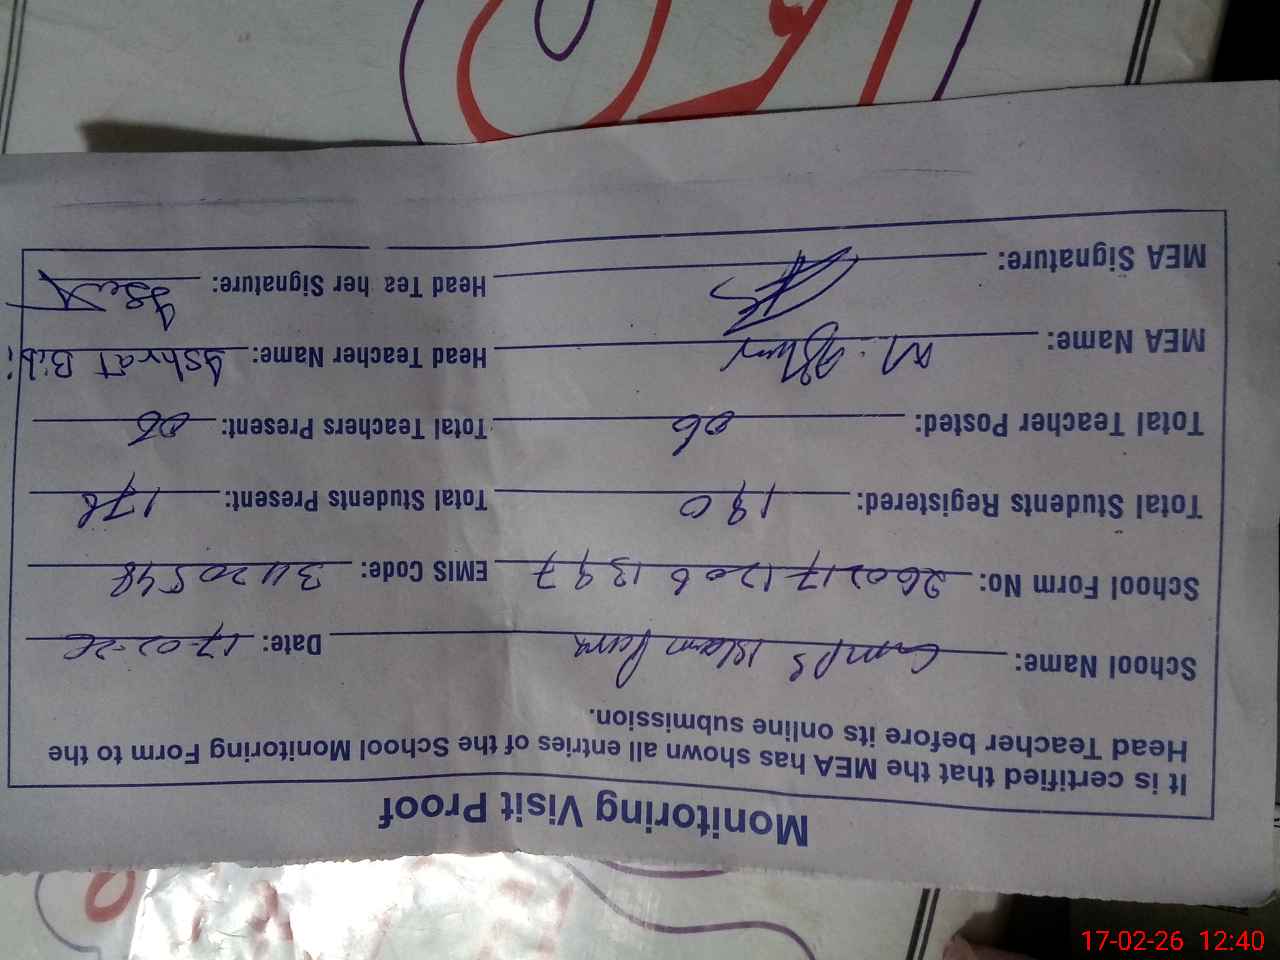 Monitoring Visit Proof
It is certified that the MEA has shown all entries of the School Monitoring Form to the
Head Teacher before its online submission.
School Name: GMPS Islam Pura Date: 17-02-26
School Form No: 26021712061397 EMIS Code: 3420548
Total Students Registered: 190 Total Students Present: 178
Total Teacher Posted: 06 Total Teachers Present: 06
MEA Name: M. Head Teacher Name: Ishrat Bibi
MEA Signature: Head Tea her Signature:
17-02-26 12:40